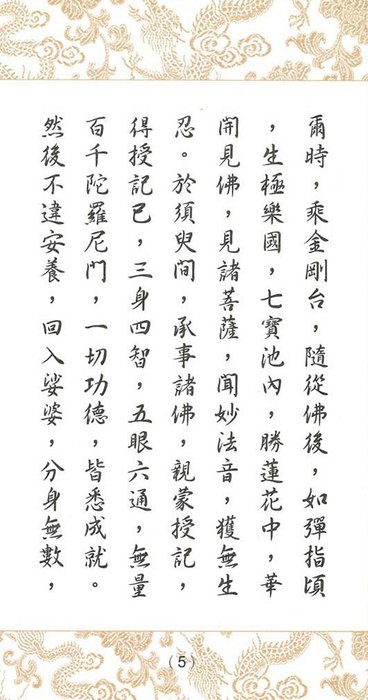 爾時，乘金剛台，隨從佛後，如彈指頃
，生極樂國，七寶池內，勝蓮花中，華
開見佛，見諸菩薩，聞妙法音，獲無生
忍。於須臾間，承事諸佛，親蒙授記，
得授記已，三身四智，五眼六通，無量
百千陀羅尼門，一切功德，皆悉成就。
然後不違安養，回入娑婆，分身無數，
(5)